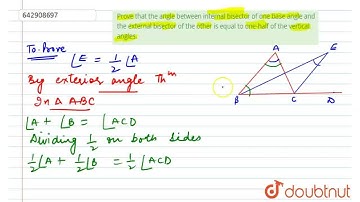 642908697
Prove that the angle between internal bisector of one base angle and
the external bisector of the other is equal to one-half of the vertical
angles.
To Prove
∠E = 1/2 ∠A
By exterior angle Thm
In Δ ABC
∠A + ∠B = ∠ACD
Dividing 1/2 on both sides
1/2 ∠A + 1/2 ∠B = 1/2 ∠ACD
A
E
B
C
D
doubtnut